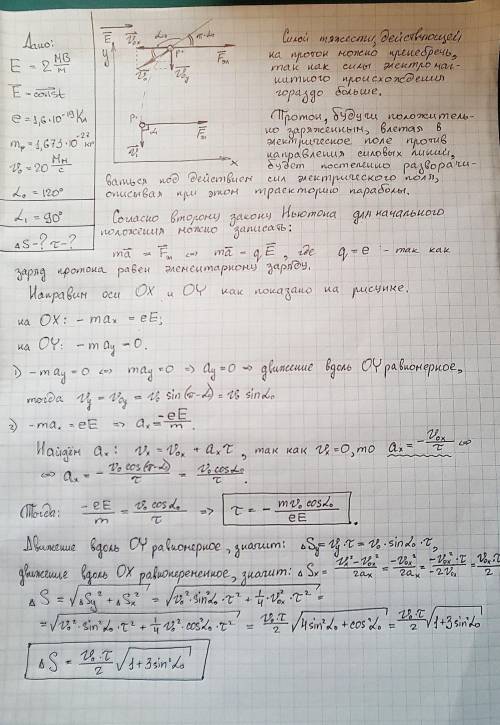 Дано:
E = 2 МВ/м
E⃗ - const
e = 1,6·10⁻¹⁹ Кл
mₚ = 1,673·10⁻²⁷ кг
v₀ = 20 Мм/с
α₀ = 120°
α₁ = 90°
ΔS-? τ-?
E⃗
y
v⃗₀ₓ
α₀
P⁺
π-α₀
F⃗эл
v⃗₀
v⃗₀y
P⁺
α₁
F⃗эл
x
Силой тяжести, действующей
на протон можно пренебречь,
так как силы электромаг-
нитного происхождения
гораздо больше.
Протон, будучи положитель-
но заряженным, влетая в
электрическое поле против
направления силовых линий,
будет постепенно разворачи-
ваться под действием сил электрического поля,
описывая при этом траекторию параболы.
Согласно второму закону Ньютона для начального
положения можно записать:
ma⃗ = F⃗эл ⇔ ma⃗ = qE⃗, где q = e - так как
заряд протона равен элементарному заряду.
Направим оси OX и OY как показано на рисунке.
на OX: -maₓ = eE;
на OY: -may = 0.
1) -may = 0 ⇔ may = 0 ⇒ ay = 0 ⇒ движение вдоль OY равномерное,
тогда vy = v₀y = v₀ sin(π-α₀) = v₀ sinα₀
2) -maₓ = eE ⇒ aₓ = -eE/m.
Найдём aₓ: vₓ = v₀ₓ + aₓτ, так как vₓ = 0, то aₓ = -v₀ₓ/τ ⇔
⇔ aₓ = -v₀cos(π-α₀)/τ = v₀cosα₀/τ.
Тогда: -eE/m = v₀cosα₀/τ ⇒ τ = -mv₀cosα₀/eE.
Движение вдоль OY равномерное, значит: ΔSy = vy·τ = v₀·sinα₀·τ,
движение вдоль OX равнопеременное, значит: ΔSₓ = (vₓ²-v₀ₓ²)/2aₓ = -v₀ₓ²/2aₓ = -v₀ₓ²·τ/-2v₀ₓ = v₀ₓ·τ/2
ΔS = √(ΔSy² + ΔSₓ²) = √(v₀²·sin²α₀·τ² + ¼·v₀ₓ²·τ²) =
= √(v₀²·sin²α₀·τ² + ¼v₀²·cos²α₀·τ²) = v₀·τ/2 √(4sin²α₀+cos²α₀) = v₀·τ/2 √(1+3sin²α₀)
ΔS = v₀·τ/2 √(1+3sin²α₀)